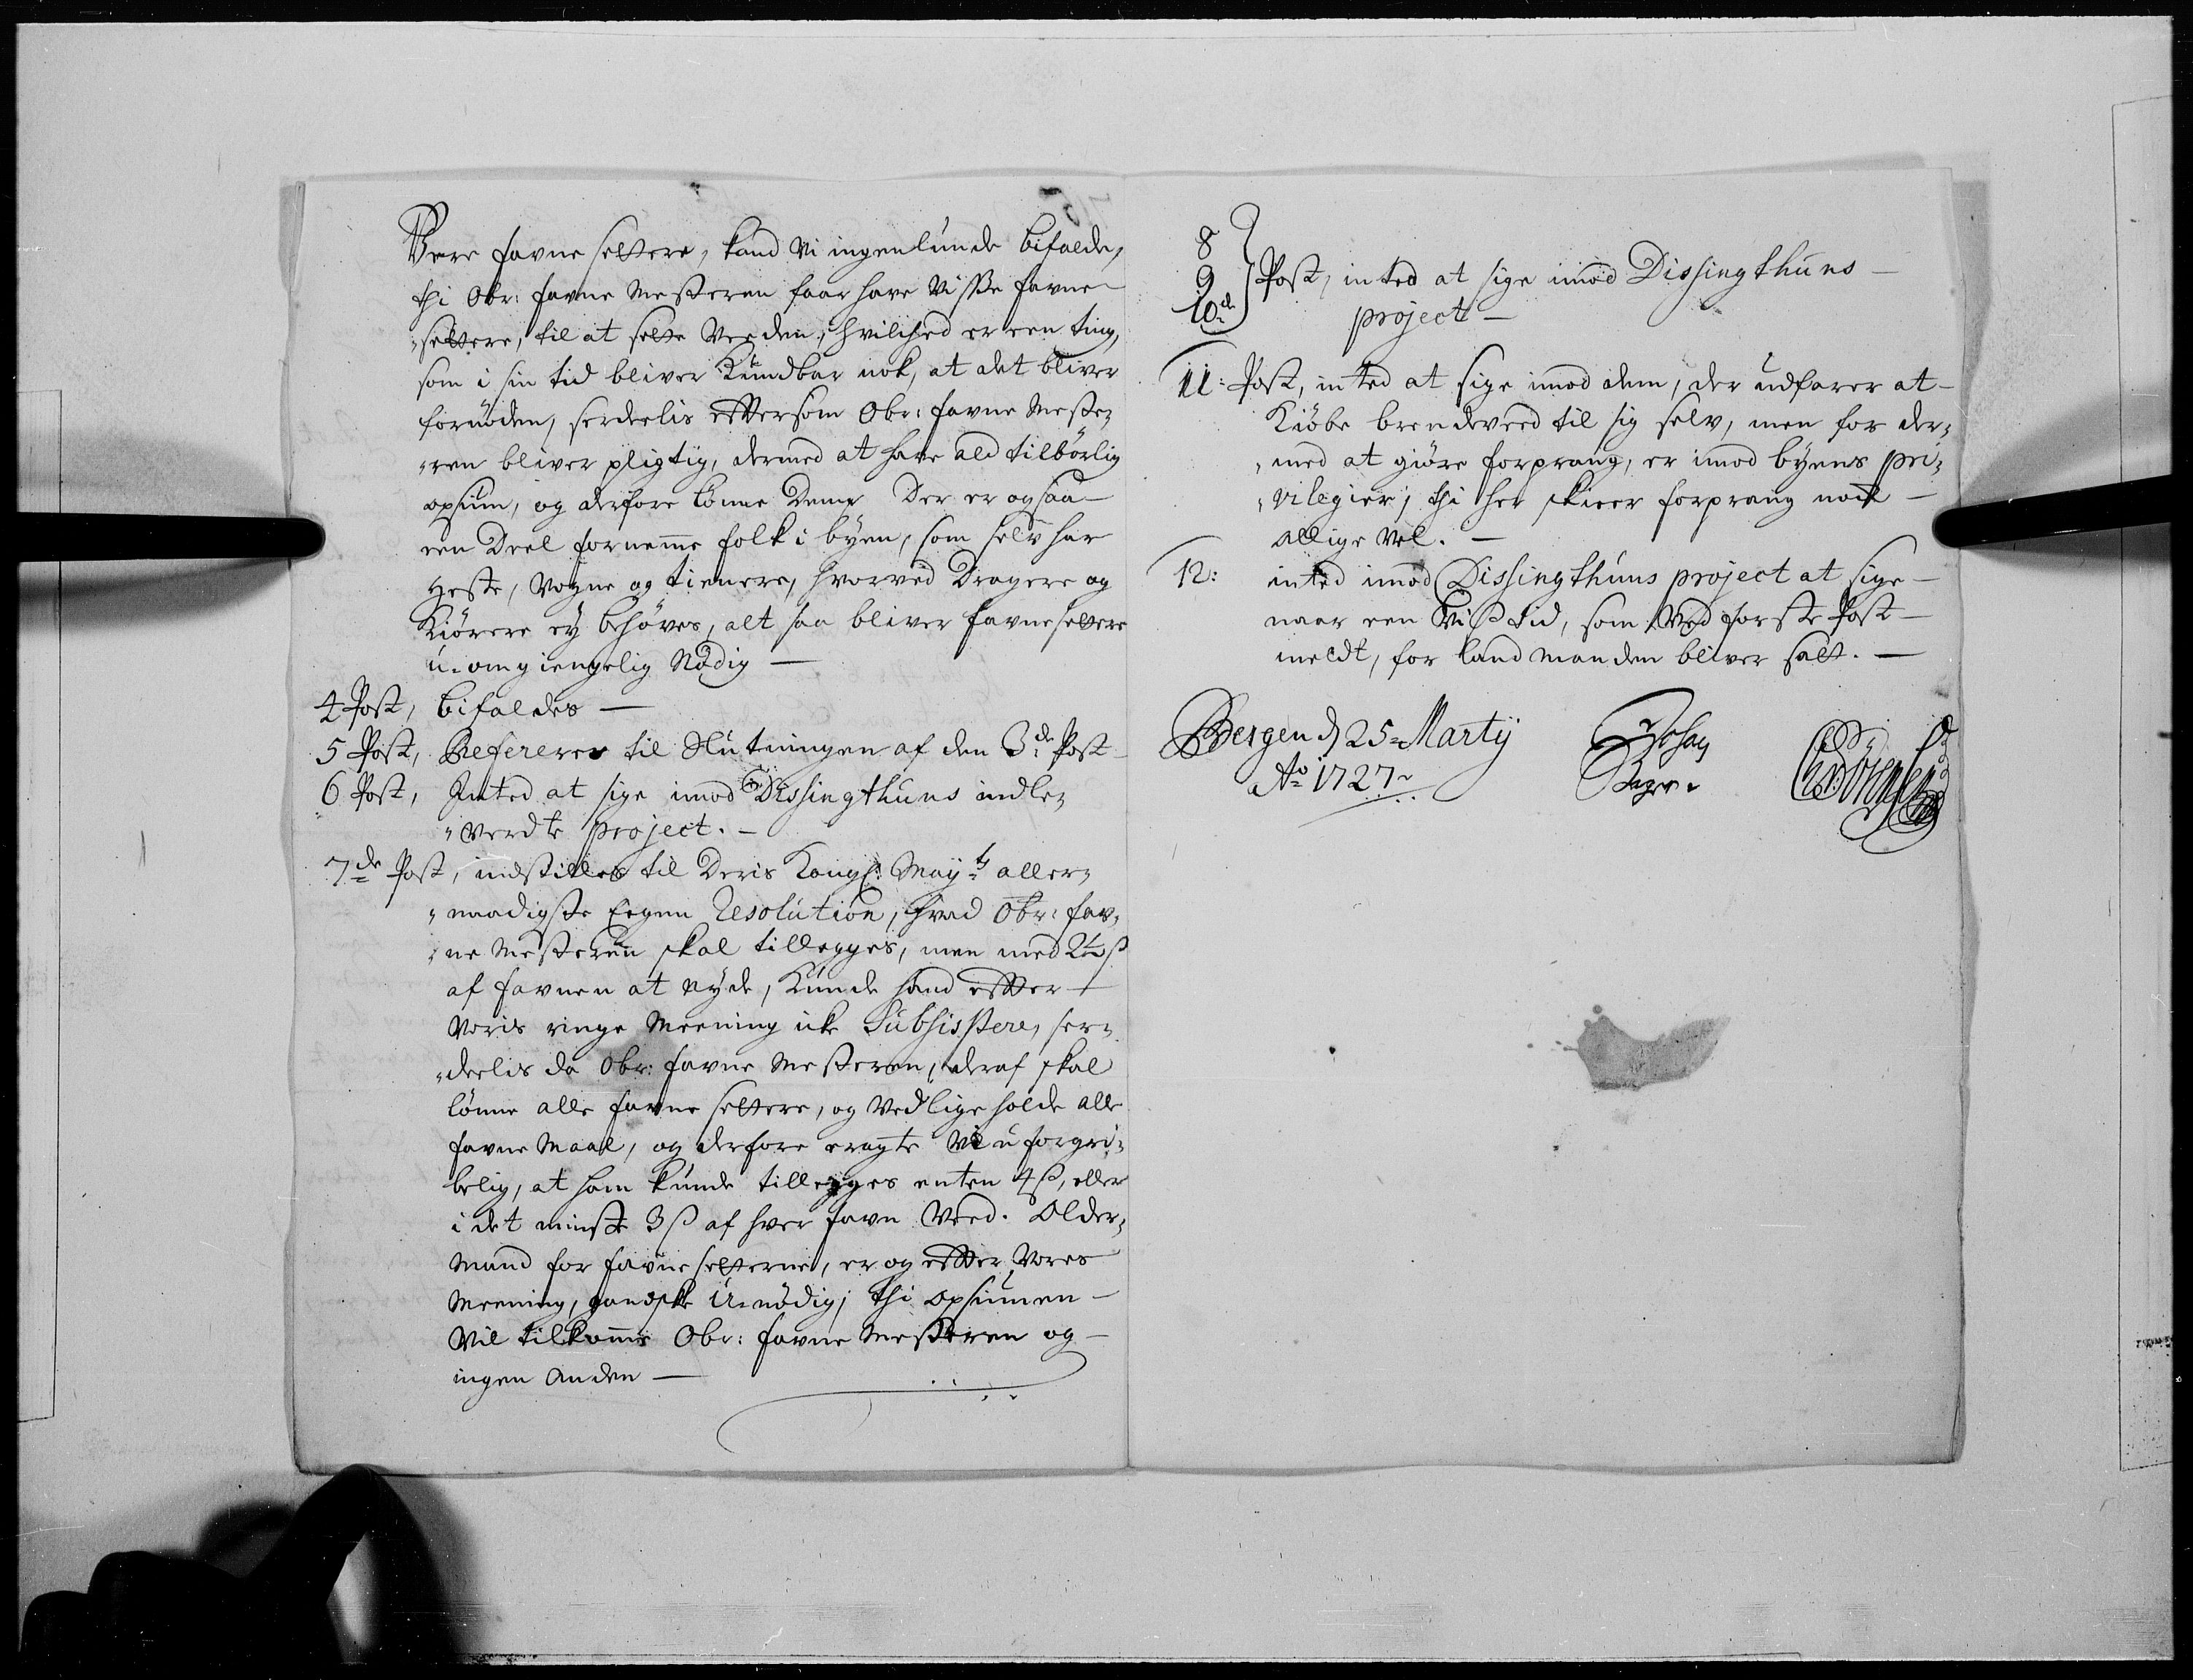 Være favne settere, kand vi ingenlunde bifalde,
thi Obr: favne Mesteren faar have visse favne-
"settere, til at sette Veeden, hvilched er een ting,
som i sin tid bliver Kundbar nok, at det bliver
fornöden, serdeelis efftersom Obr: favne Meste¬
"ren bliver pligtig, dermed at have ald tilbörlig
opsiun, og derfore lönne Dem. Der er ogsaa
een Deel fornemme folk i byen, som selv har
Heste, Vogne og tienere, hvorved Dragere og
Kiörere ey behöves, alt saa bliver favnesettere
u-omgiengelig Nödig —
4 Post, bifaldes —
5 Post, Refererer til Slutningen af den 3de Post
6 Post, Inted at sige imod Dissingthuns indle¬
"verdte project. —
7de Post, indstilles til Deris Kongl: Mayts aller¬
"naadigste Eegen Resolution, hvad Obr: fav¬
"ne Mesteren skal tillegges, men med 2½ ß
af favnen at nyde, Kunde hand effter
Voris ringe Meening icke Subsistere, ser¬
"deelis da Obr: favne Mesteren, deraf skal
lönne alle favne settere, og Vedlige holde alle
favne Maal, og derfore eragte Vi uforgri¬
belig, at ham kunde tillegges enten 4 ß, eller
i det minste 3 ß af hver favn Veed. Older¬
Mand for favne setterne, er og effter Vores
Meening, gandske U-nödig; thi opsiunen
Vil tilkomme Obr: favne Mesteren og
ingen Anden —
8
9 Post, inted at sige imod Dissingthuns
10de project —
11: Post, inted at sige imod dem, der udfarer at
Kiöbe brendeveed til sig selv, men for der¬
"med at giöre forprang, er imod byens pri¬
"vilegier; thi her skieer forprang nock
allige vel. —
12: inted imod Dissingthuns project at sige
naar een Viß tid, som Ved forste Post
meldt, for land manden bliver satt. —
Bergen d 25 Martij
Ao 1727